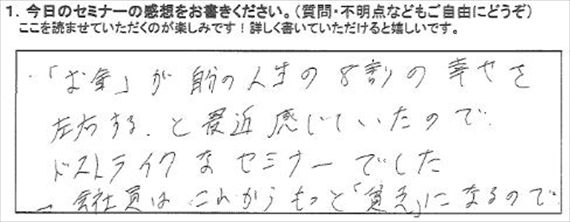 1. 今日のセミナーの感想をお書きください。（質問・不明点などもご自由にどうぞ）
ここを読ませていただくのが楽しみです！詳しく書いていただけると嬉しいです。
・「お金」が自分の人生の8割の幸せを
左右する。と最近感じていたので
ドストライクなセミナーでした
→会社員はこれからもっと「貧乏」になるので